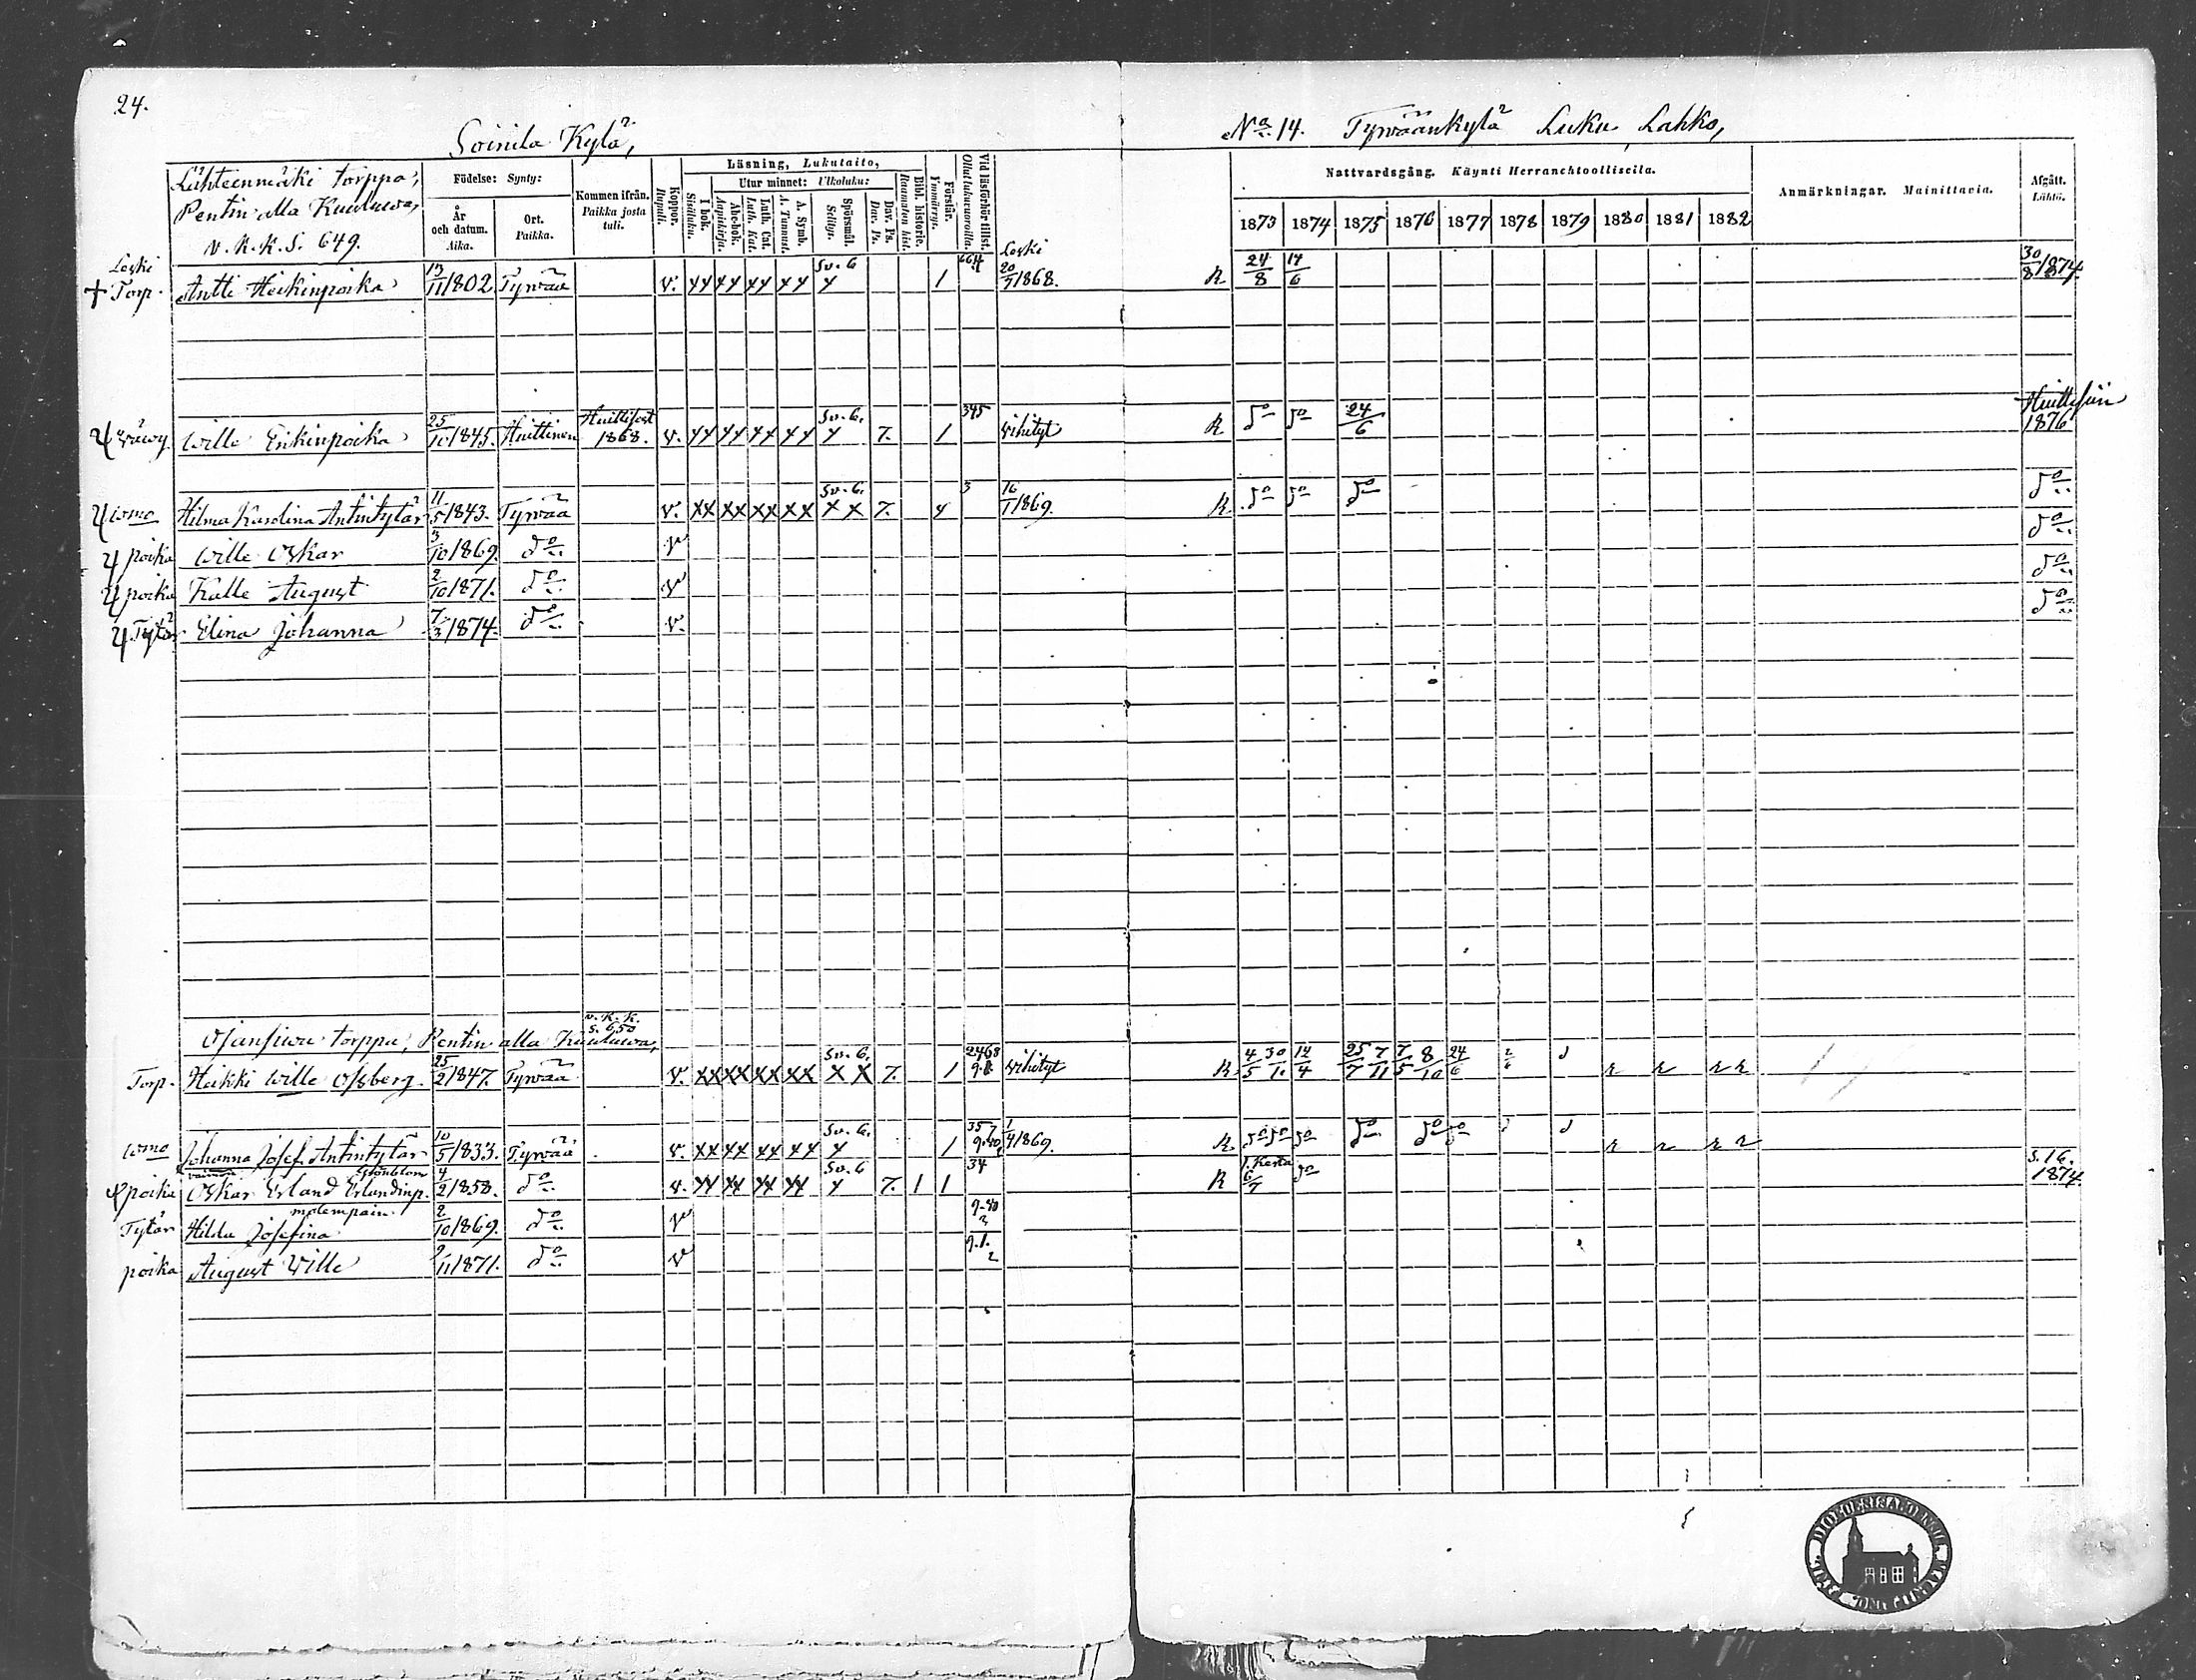 24.
Soinila Kylä,
No 14. Tyrväänkylä Luku Lahko,
Lähteenmäki torppa,
Pentin alla Kuuluva,
v. K. K. S. 649.
Födelse: Synty:
År och datum. Aika.
Ort. Paikka.
Kommen ifrån. Paikka josta tuli.
Koppor. Rupuli.
Läsning, Lukutaito,
I bok. Sisäluku.
Utur minnet: Ulkoluku:
Abc-bok. Aapiskirja.
Luth. Cat. Luth. Kat.
A. Symb. A. Tunnust.
Spörsmål. Selitys.
Dav. Ps. Dav. Ps.
Bibl. historie. Raamatun hist.
Förstår. Ymmärrys.
Vid läsförhör tillst. Ollut lukuvuoroilla.
Nattvardsgång. Käynti Herranehtoollisella.
1873 1874 1875 1876 1877 1878 1879 1880 1881 1882
Anmärkningar. Mainittavia.
Afgått. Lähtö.
Leski Torp. Antti Heikinpoika 13/11 1802 Tyrvää v. Sv. 6 1 Leski 20/7 1868. R 24/8 14/6 30/8 1874.
Vävy. Wille Erikinpoika 25/10 1845. Huittinen Huittisist 1868. v. Sv. 6. 7. 1 345 vihityt R do do 24/6 Huittisiin 1876
womo Hilma Karolina Antintytär 11/5 1843. Tyrvää v. Sv. 6. 7. 3 16/1 1869. R do do do do
poika Wille Oskar 3/10 1869. do v do
poika Kalle August 2/10 1871. do v do
Tytär Elina Johanna 7/3 1874. do v. do
Ojansuun torppa, Pentin alla Kuuluva, v. K. K. S. 650
Torp. Heikki Wille Ofsberg. 25/2 1847. Tyrvää v. Sv. 6. 7. 1 2468 vihityt R 4/5 30/1 12/4 25/7 7/11 7/5 8/10 24/6 2/6
womo Johanna Josef. Antintytär 10/5 1833. Tyrvää v. Sv. 6. 1 357 1/4 1869. R do do do do do do
poika Oskar Erland Erlandinp. 4/2 1858. do v. Sv. 6 7. 1 1 34 R 1. Kerta 6/7 do S. 16. 1874.
molempain.
Tytär Hilda Josefina 2/10 1869. do v 9.80
poika August Wille 2/11 1871. do v 9.1.